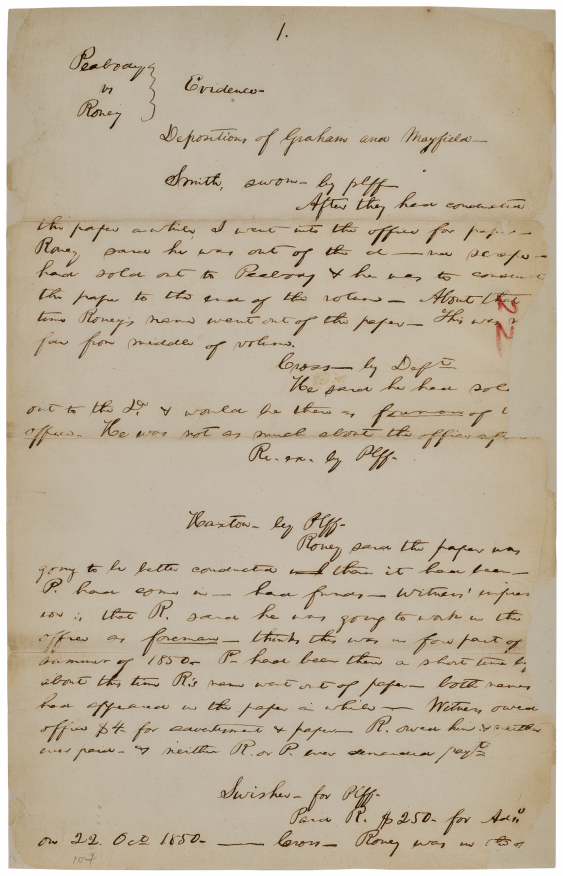 1.
Peabody
vs
Roney
Evidence-
Depositions of Graham and Mayfield-
Smith, sworn- by plff
After they had conducted
the paper awhile, I went into the office for paper-
Roney said he was out of the d—nd scrape-
had sold out to Peabody & he was to conduct
the paper to the end of the volume- About that
time Roney's name went out of the paper- This was
far from middle of volume.
Cross- by Deft
He said he had sold
out to the Dr & would be there as foreman of
office. He was not as much about the office after
Re-ex- by Plff-
Haxton- by Plff-
Roney said the paper was
going to be better conducted than it had been-
P. had come in- had funds- Witness' impres
ion is that R. said he was going to work in the
office as foreman- thinks this was in fore part of
summer of 1850- P. had been there a short time by
about this time R's name went out of paper- both names
had appeared in the paper a while- Witness owed
office $4. for advertisement & paper- R. owed him & neither
ever paid- & neither R. or P. ever demanded payt
Swisher- for Plff-
Paid R. $250- for
on 22. Oct 1850- Cross- Roney was in
104
22